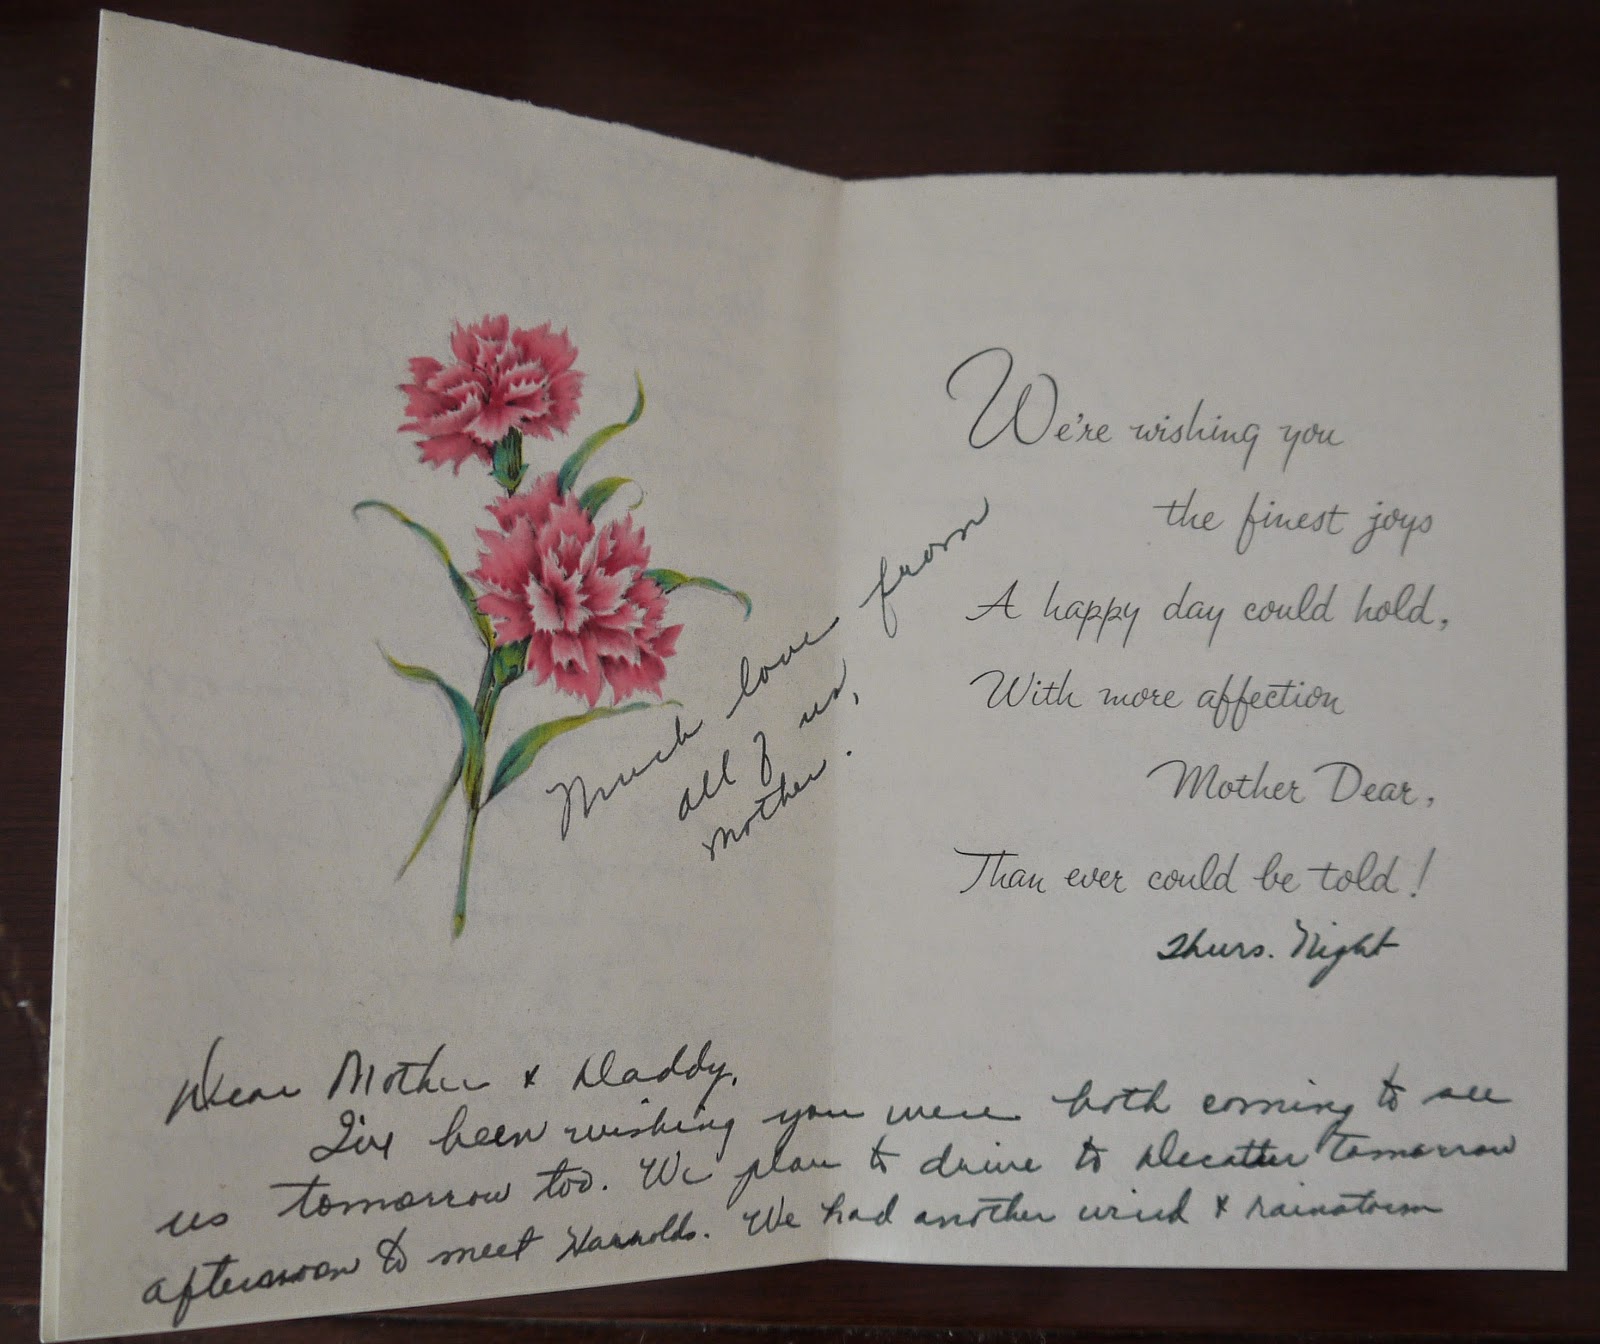 We're wishing you
the finest joys
A happy day could hold,
With more affection
Mother Dear,
Than ever could be told!
Much love from
all of us,
Mother.
Thurs. Night
Dear Mother & Daddy,
I've been wishing you were both coming to see
us tomorrow too. We plan to drive to Decatur tomorrow
afternoon to meet Harrolds. We had another wind & rainstorm